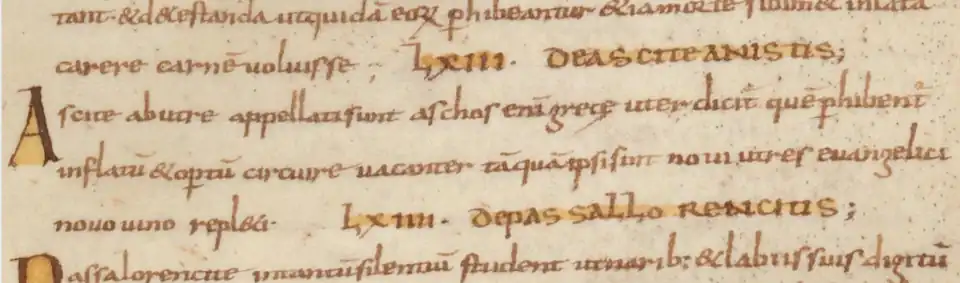 tant. & d&estanda ut quidā eorꝝ phibeantur & iam
carere carnē voluisse; LXIII. DE ASCITEANISTIS;
Ascite ab utre appellati sunt aschos enī grece uter dicit̄ quē phibent̄
inflatū & optū circuire vacanter tāquā ipsi sunt novi utres evangelici
novo vino repleti. LXIIII. DE PASSALLORENCITIS;
Passalorencite intantū silentiū student ut narib; & labris suis digitū